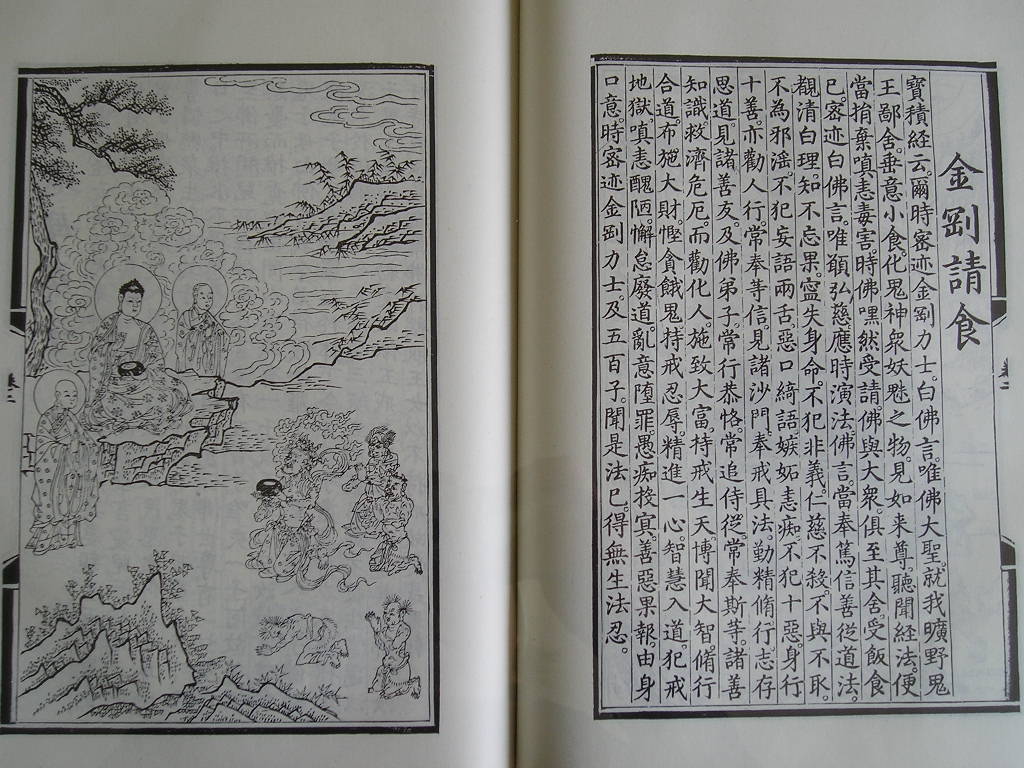 金剛請食
寶積經云。爾時密迹金剛力士。白佛言。唯佛大聖。就我曠野鬼
王鄙舍。垂意小食。化鬼神眾妖魅之物。見如来尊。聽聞經法。便
當捎棄嗔恚毒害。時佛嘿然受請。佛與大衆。俱至其舍。受飯食
已。密迹白佛言。唯願弘慈。應時演法。佛言。當奉篤信。善從道法。
觀清白理。知不忘果。寍失身命。不犯非義。仁慈不殺。不與不取。
不為邪滛。不犯妄語兩舌。惡口綺語。嫉妬恚痴。不犯十惡。身行
十善。亦勸人行。常奉等信。見諸沙門。奉戒具法。勤精脩行。志存
思道。見諸善友。及佛弟子。常行恭恪。常追侍從。常奉斯等。諸善
知識。救濟危厄。而勸化人。施致大富。持戒生天。博聞大智。脩行
合道。布施大財。慳貪餓鬼。持戒忍辱。精進一心。智慧入道。犯戒
地獄。嗔恚醜陋。懈怠廢道。亂意墮罪。愚痴挍寘。善惡果報。由身
口意。時密迹金剛力士。及五百子。聞是法已。得無生法忍。